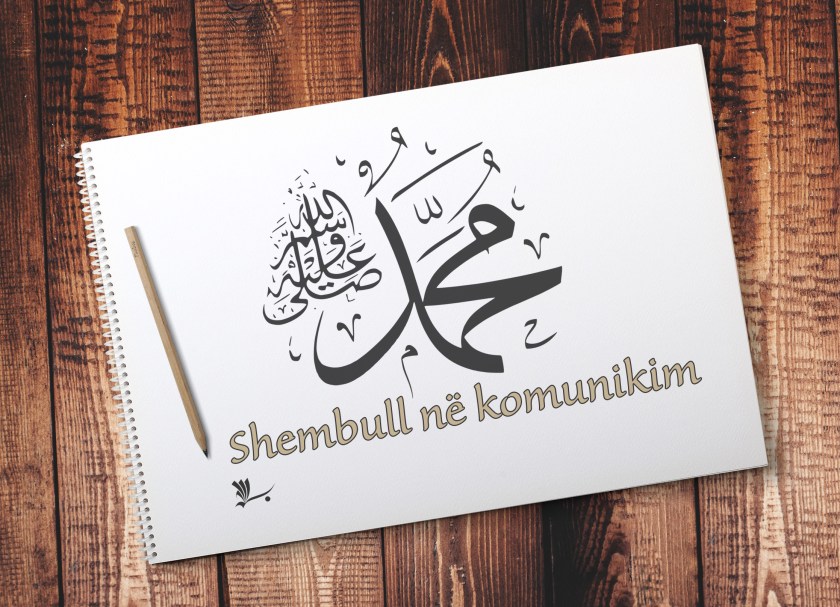 محمد
صلى الله عليه وسلم
Shembull në komunikim